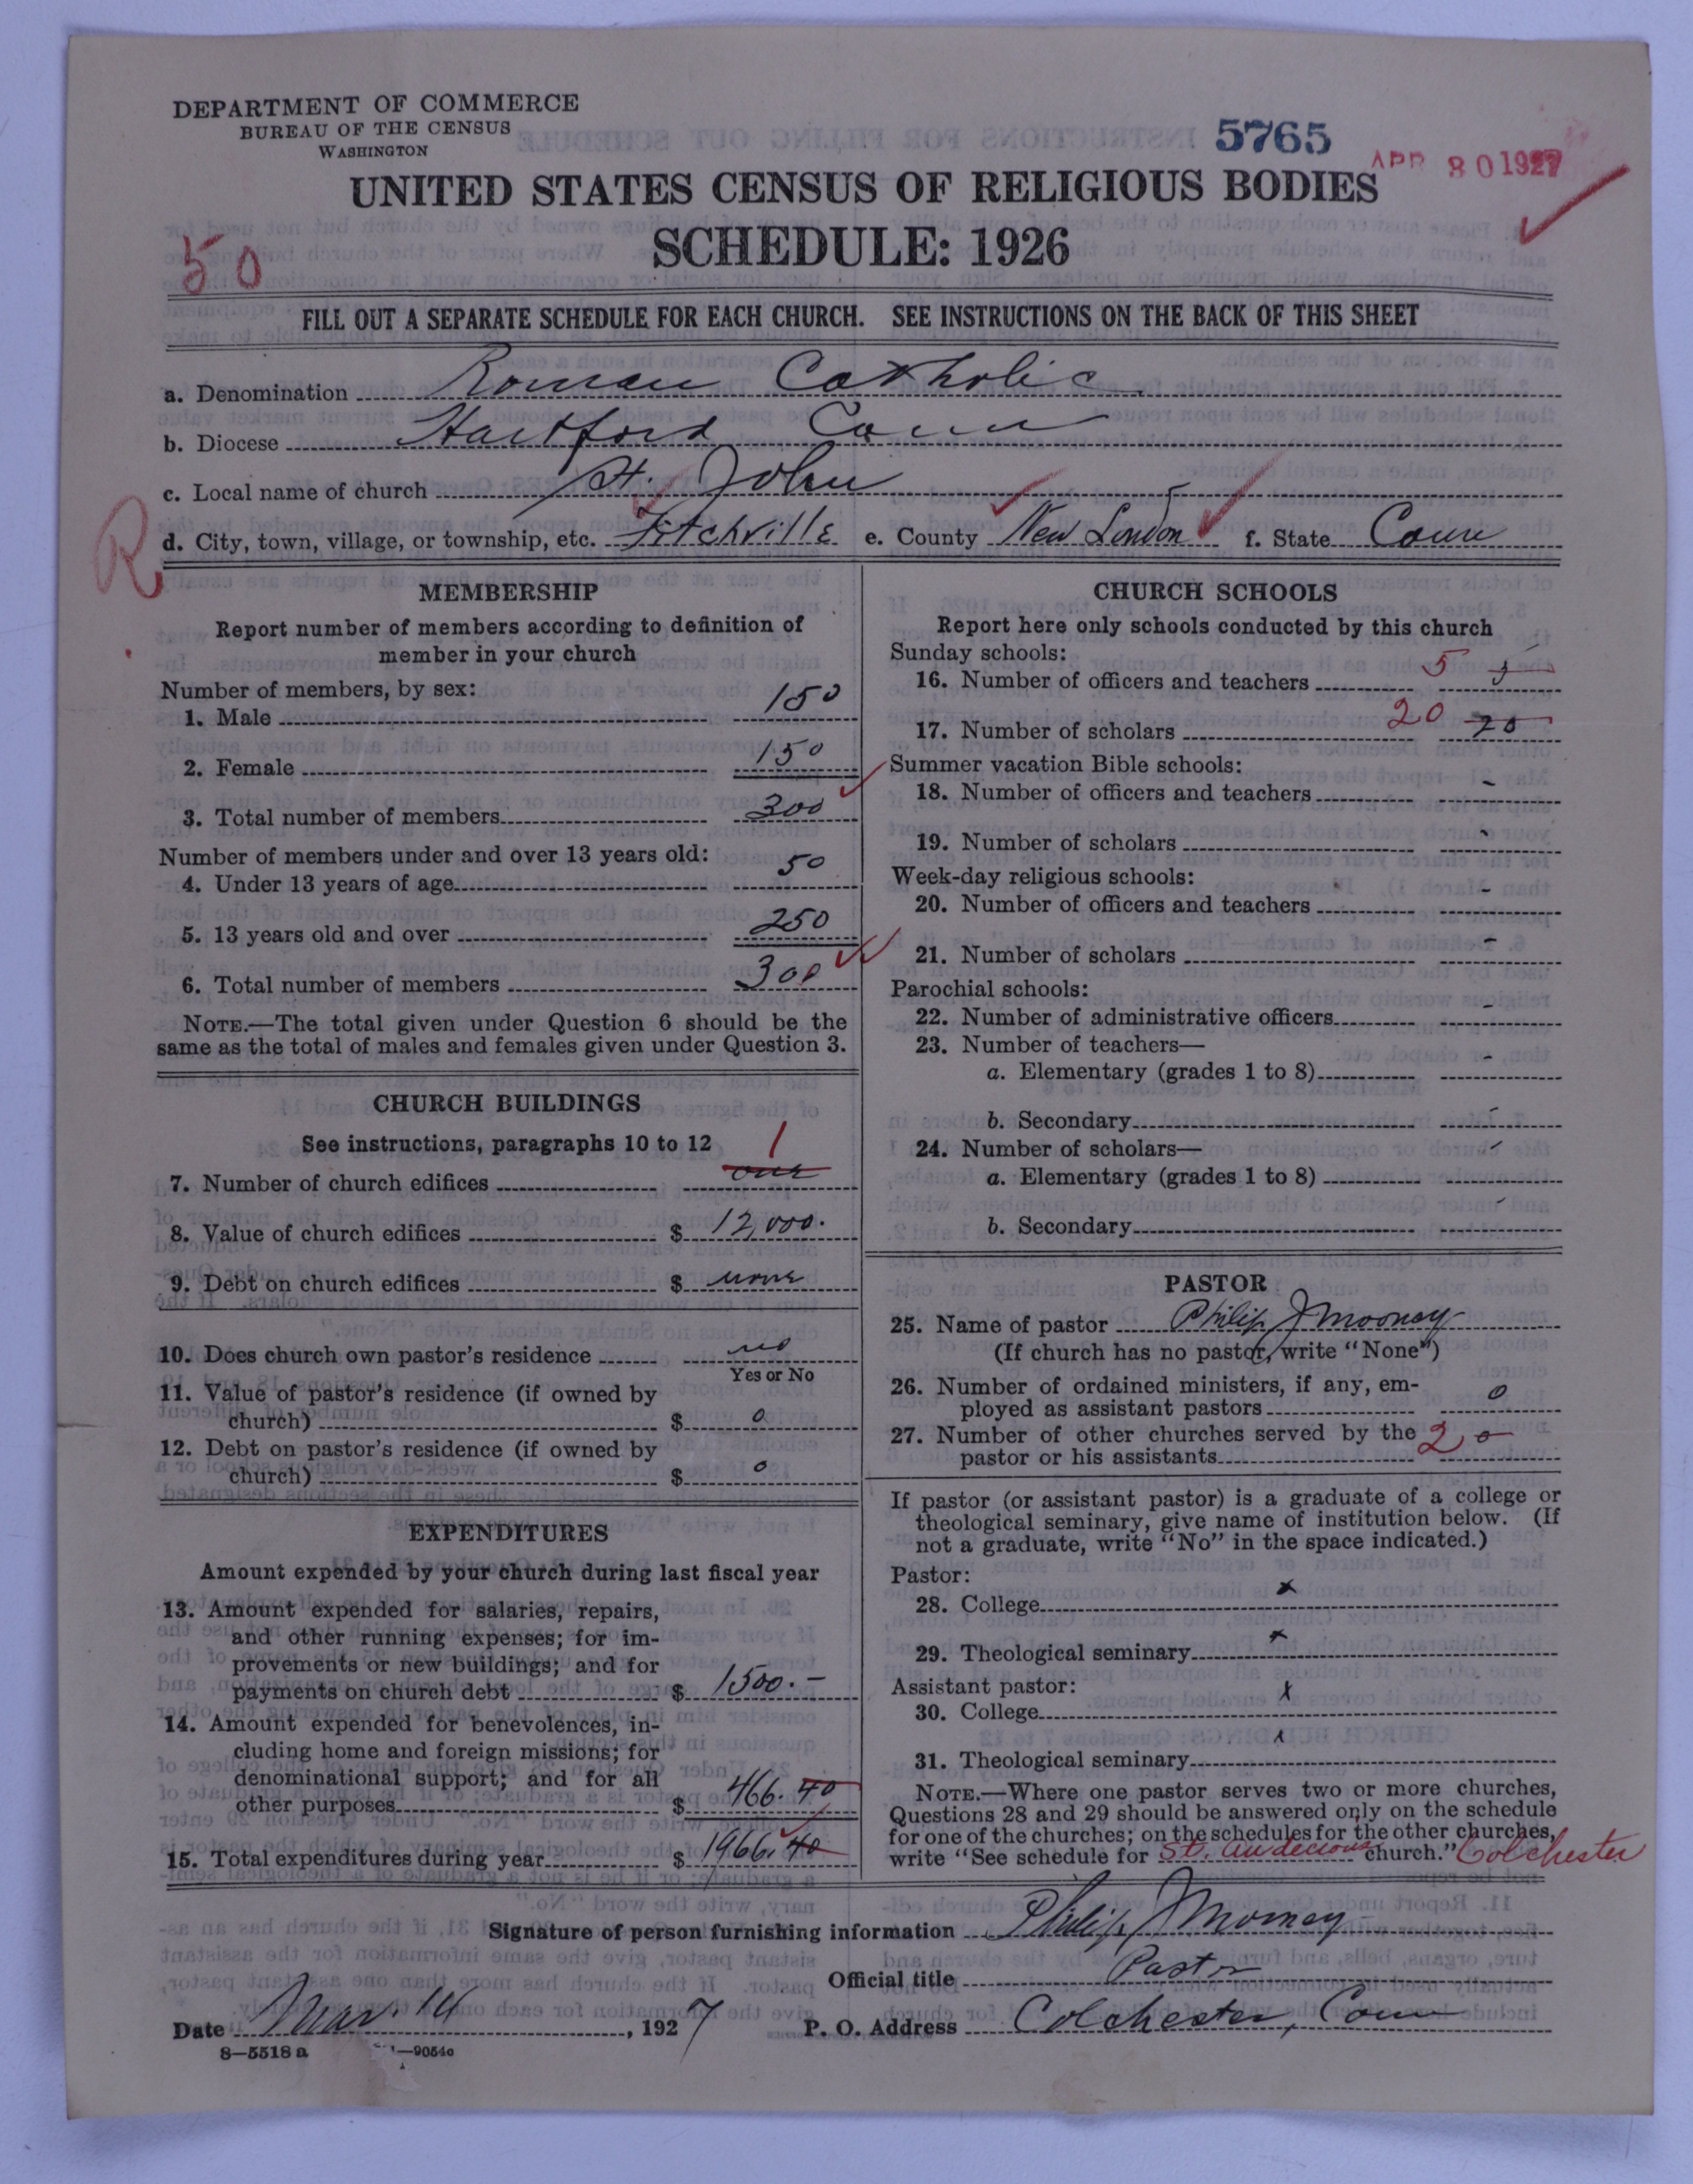 DEPARTMENT OF COMMERCE
BUREAU OF THE CENSUS
WASHINGTON
5765
APR 30 1927
UNITED STATES CENSUS OF RELIGIOUS BODIES
SCHEDULE: 1926
50
FILL OUT A SEPARATE SCHEDULE FOR EACH CHURCH. SEE INSTRUCTIONS ON THE BACK OF THIS SHEET
a. Denomination Roman Catholic
b. Diocese Hartford Conn
c. Local name of church St. John
R
d. City, town, village, or township, etc. Fitchville e. County New London f. State Conn
MEMBERSHIP
Report number of members according to definition of
member in your church
Number of members, by sex:
1. Male 150
2. Female 150
3. Total number of members 300
Number of members under and over 13 years old:
4. Under 13 years of age 50
5. 13 years old and over 250
6. Total number of members 300
NOTE.—The total given under Question 6 should be the
same as the total of males and females given under Question 3.
CHURCH BUILDINGS
See instructions, paragraphs 10 to 12
7. Number of church edifices 1 one
8. Value of church edifices $ 12,000.
9. Debt on church edifices $ none
10. Does church own pastor's residence no
Yes or No
11. Value of pastor's residence (if owned by
church) $ 0
12. Debt on pastor's residence (if owned by
church) $ 0
EXPENDITURES
Amount expended by your church during last fiscal year
13. Amount expended for salaries, repairs,
and other running expenses; for im-
provements or new buildings; and for
payments on church debt $ 1500.-
14. Amount expended for benevolences, in-
cluding home and foreign missions; for
denominational support; and for all
other purposes $ 466.40
15. Total expenditures during year $ 1966.40
CHURCH SCHOOLS
Report here only schools conducted by this church
Sunday schools:
16. Number of officers and teachers 5 5
17. Number of scholars 20 20
Summer vacation Bible schools:
18. Number of officers and teachers -
19. Number of scholars -
Week-day religious schools:
20. Number of officers and teachers -
21. Number of scholars -
Parochial schools:
22. Number of administrative officers -
23. Number of teachers—
a. Elementary (grades 1 to 8) -
b. Secondary -
24. Number of scholars—
a. Elementary (grades 1 to 8) -
b. Secondary -
PASTOR
25. Name of pastor Philip J Mooney
(If church has no pastor, write "None")
26. Number of ordained ministers, if any, em-
ployed as assistant pastors 0
27. Number of other churches served by the
pastor or his assistants 2 0
If pastor (or assistant pastor) is a graduate of a college or
theological seminary, give name of institution below. (If
not a graduate, write "No" in the space indicated.)
Pastor:
28. College x
29. Theological seminary x
Assistant pastor:
30. College x
31. Theological seminary x
NOTE.—Where one pastor serves two or more churches,
Questions 28 and 29 should be answered only on the schedule
for one of the churches; on the schedules for the other churches,
write "See schedule for St. church." Colchester
Signature of person furnishing information Philip J Mooney
Official title Pastor
Date Mar. 14, 1927 P. O. Address Colchester, Conn
8—5518 a —9054c